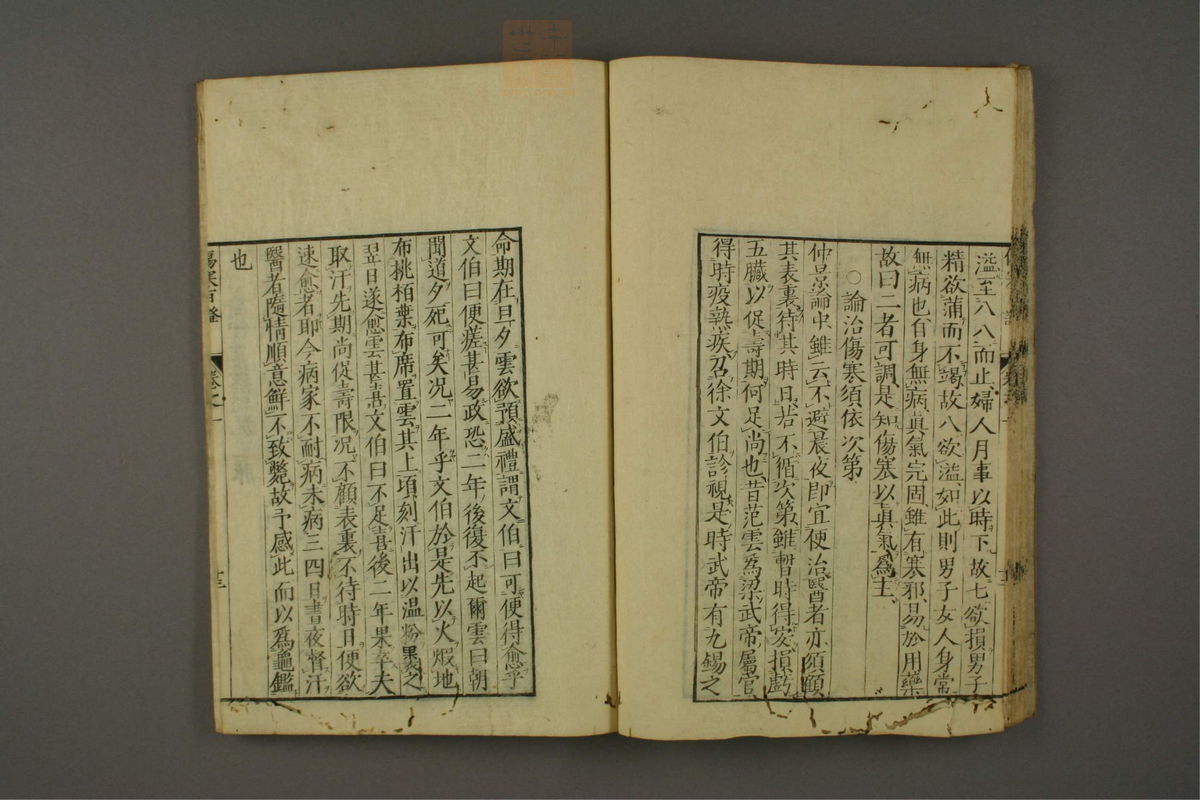 溢至八八而止婦人月事以時下故七欲損男子
精欲蒲而不竭故八欲溢如此則男子女人身常
無病也自身無病眞氣完固雖有寒邪易於用藥
故曰二者可調是知傷寒以眞氣爲主
○論治傷寒須依次第
仲景論中雖云不避晨夜即宜便治醫者亦須顧
其表裏待其時日若不循次第雖暫時得安損虧
五臟以促壽期何足尚也昔范雲爲梁武帝屬官
得時疫熱疾召徐文伯診視是時武帝有九錫之
命期在旦夕雲欲預盛禮謂文伯曰可便得愈乎
文伯曰便瘥甚易政恐二年後復不起爾雲曰朝
聞道夕死可矣况二年乎文伯於是先以火煅地
布桃柏葉布席置雲其上頃刻汗出以温粉裹之
翌日遂愈雲甚喜文伯曰不足喜後二年果卒夫
取汗先期尚促壽限况不顧表裏不待時日便欲
速愈者耶今病家不耐病未病三四日晝夜督汗
醫者隨情順意鮮不致斃故予感此而以爲龜鑑
也
傷寒百證
卷之一
十三